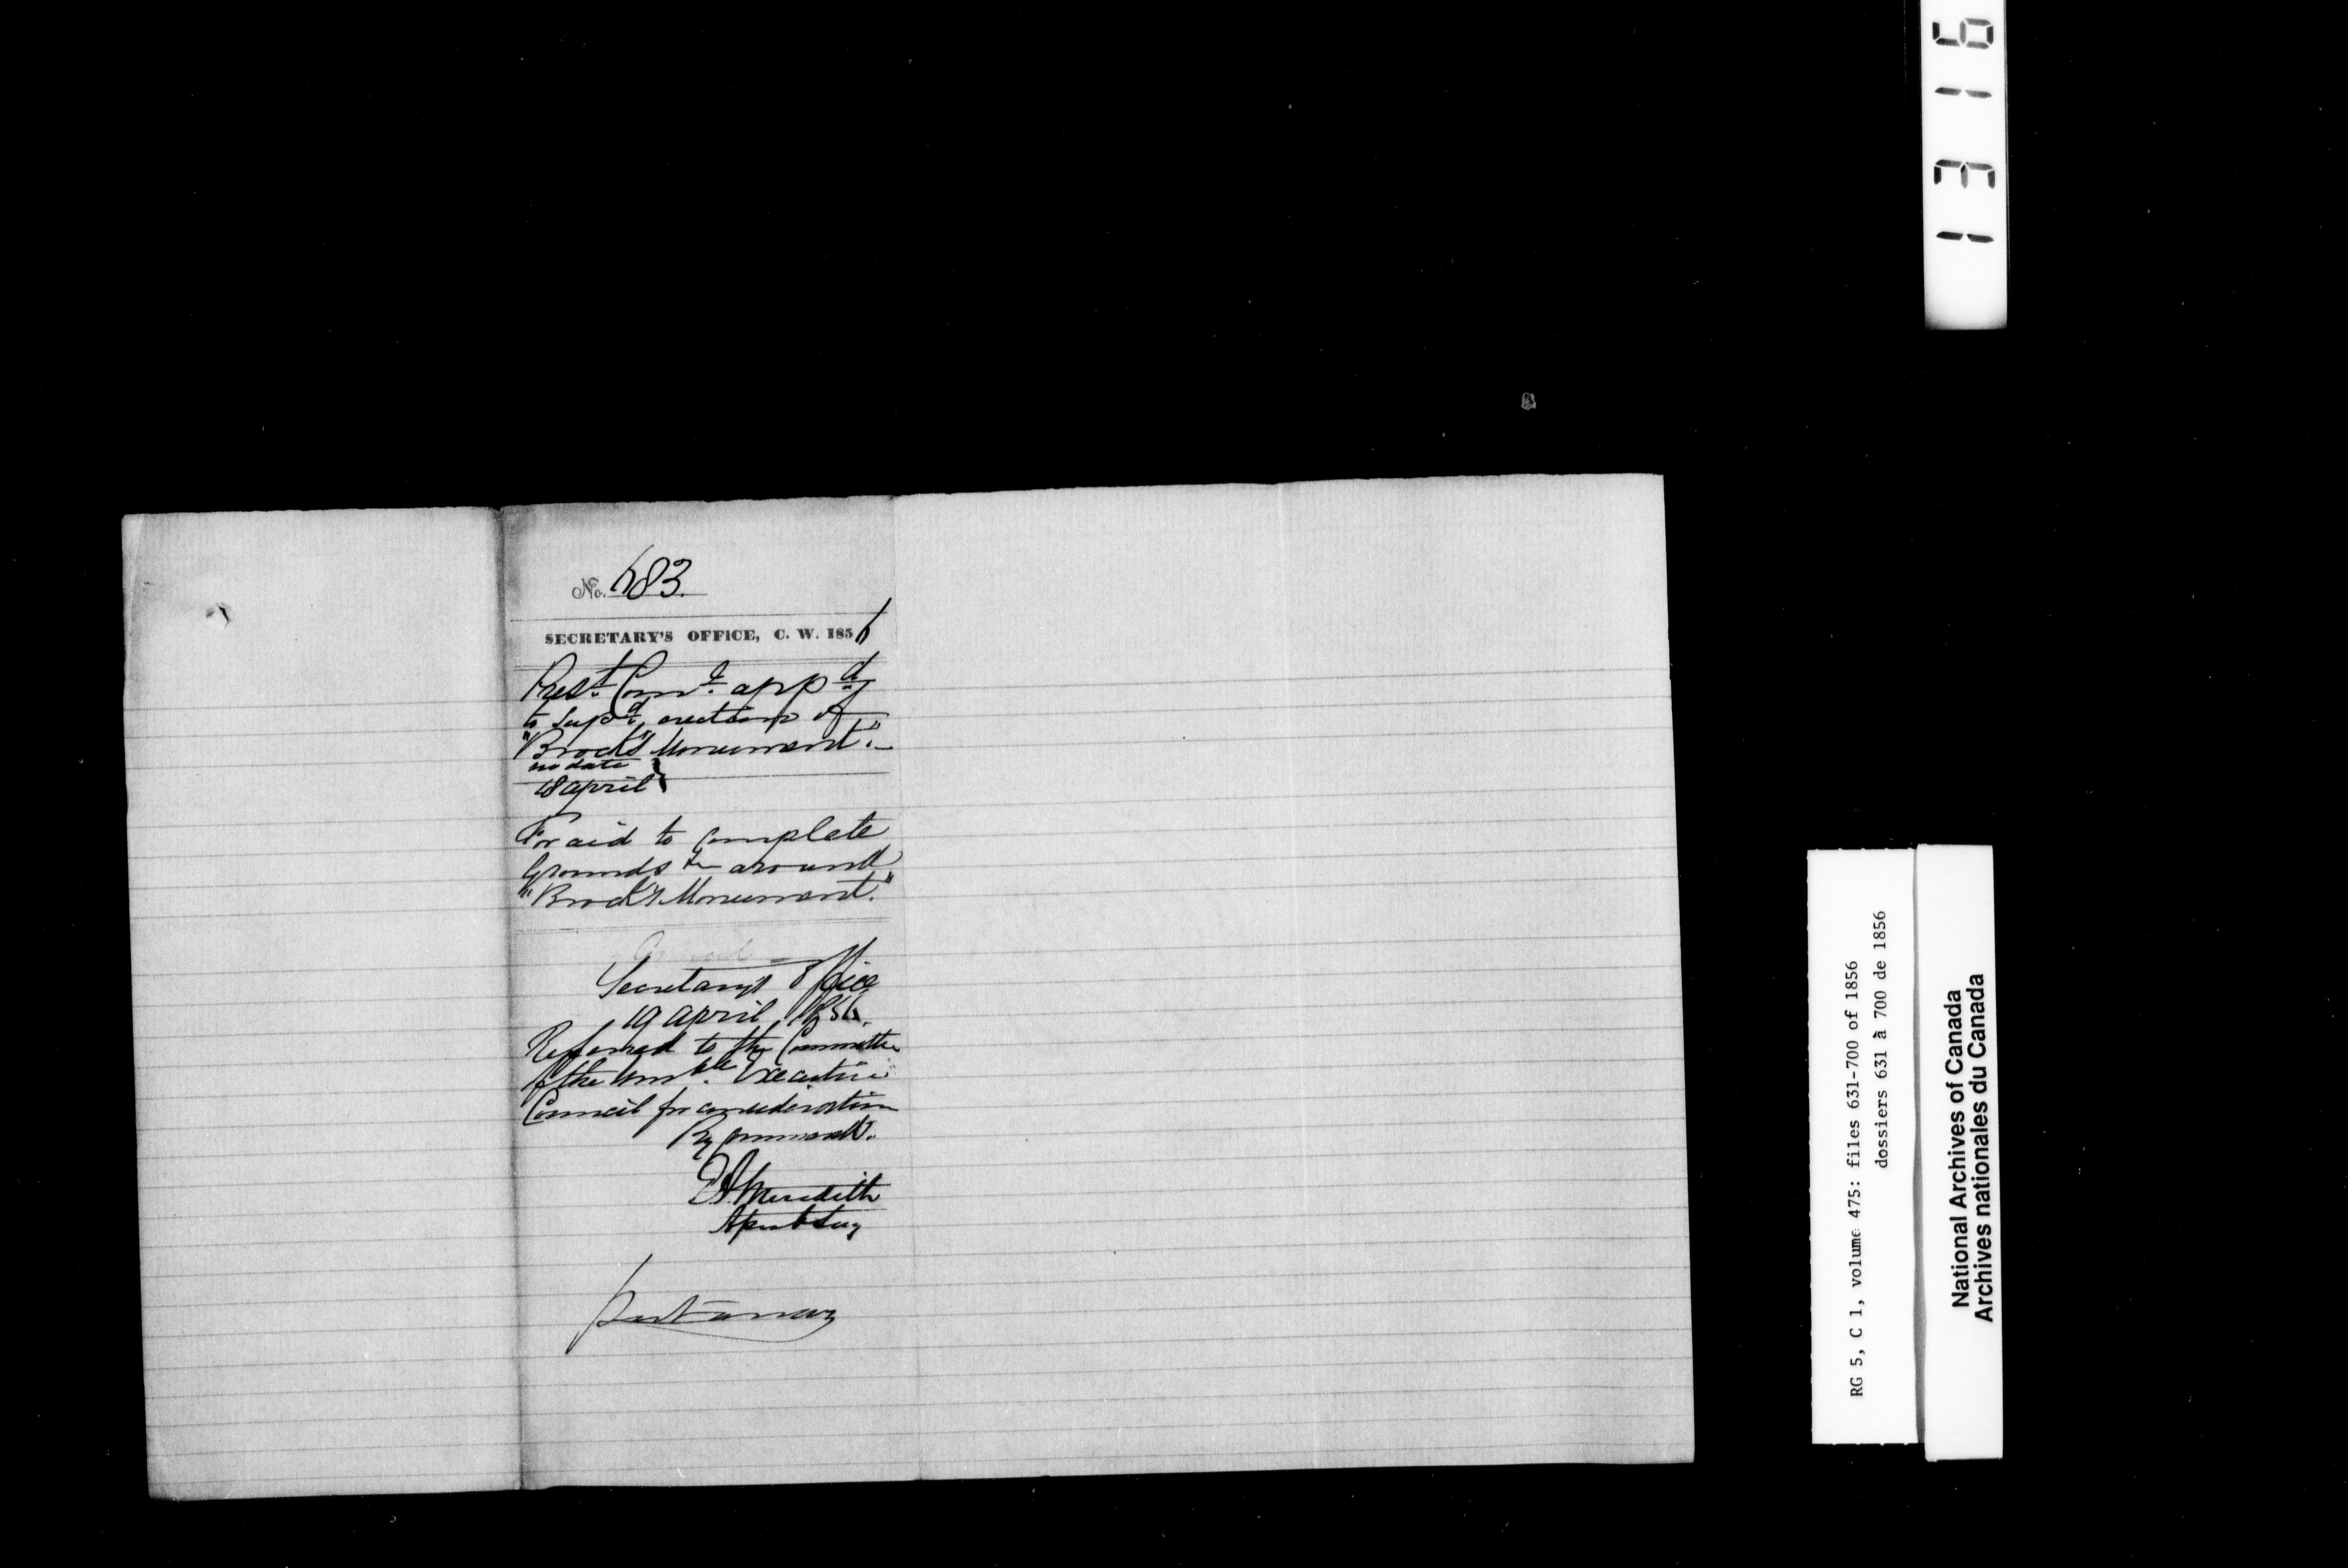 No. 683.
SECRETARY'S OFFICE, C. W. 1856
Prest. Comt. appd
to Supd. erection of
"Brock's Monument".
no date
18 april
For aid to complete
Grounds &c around
"Brock's Monument."
Secretary's Office
19 April 1856.
Referred to the Committee
of the Honble. Executive
Council for consideration
By command.
E A Meredith
Asst Secy
1316
RG 5, C 1, volume 475: files 631-700 of 1856
dossiers 631 à 700 de 1856
National Archives of Canada
Archives nationales du Canada